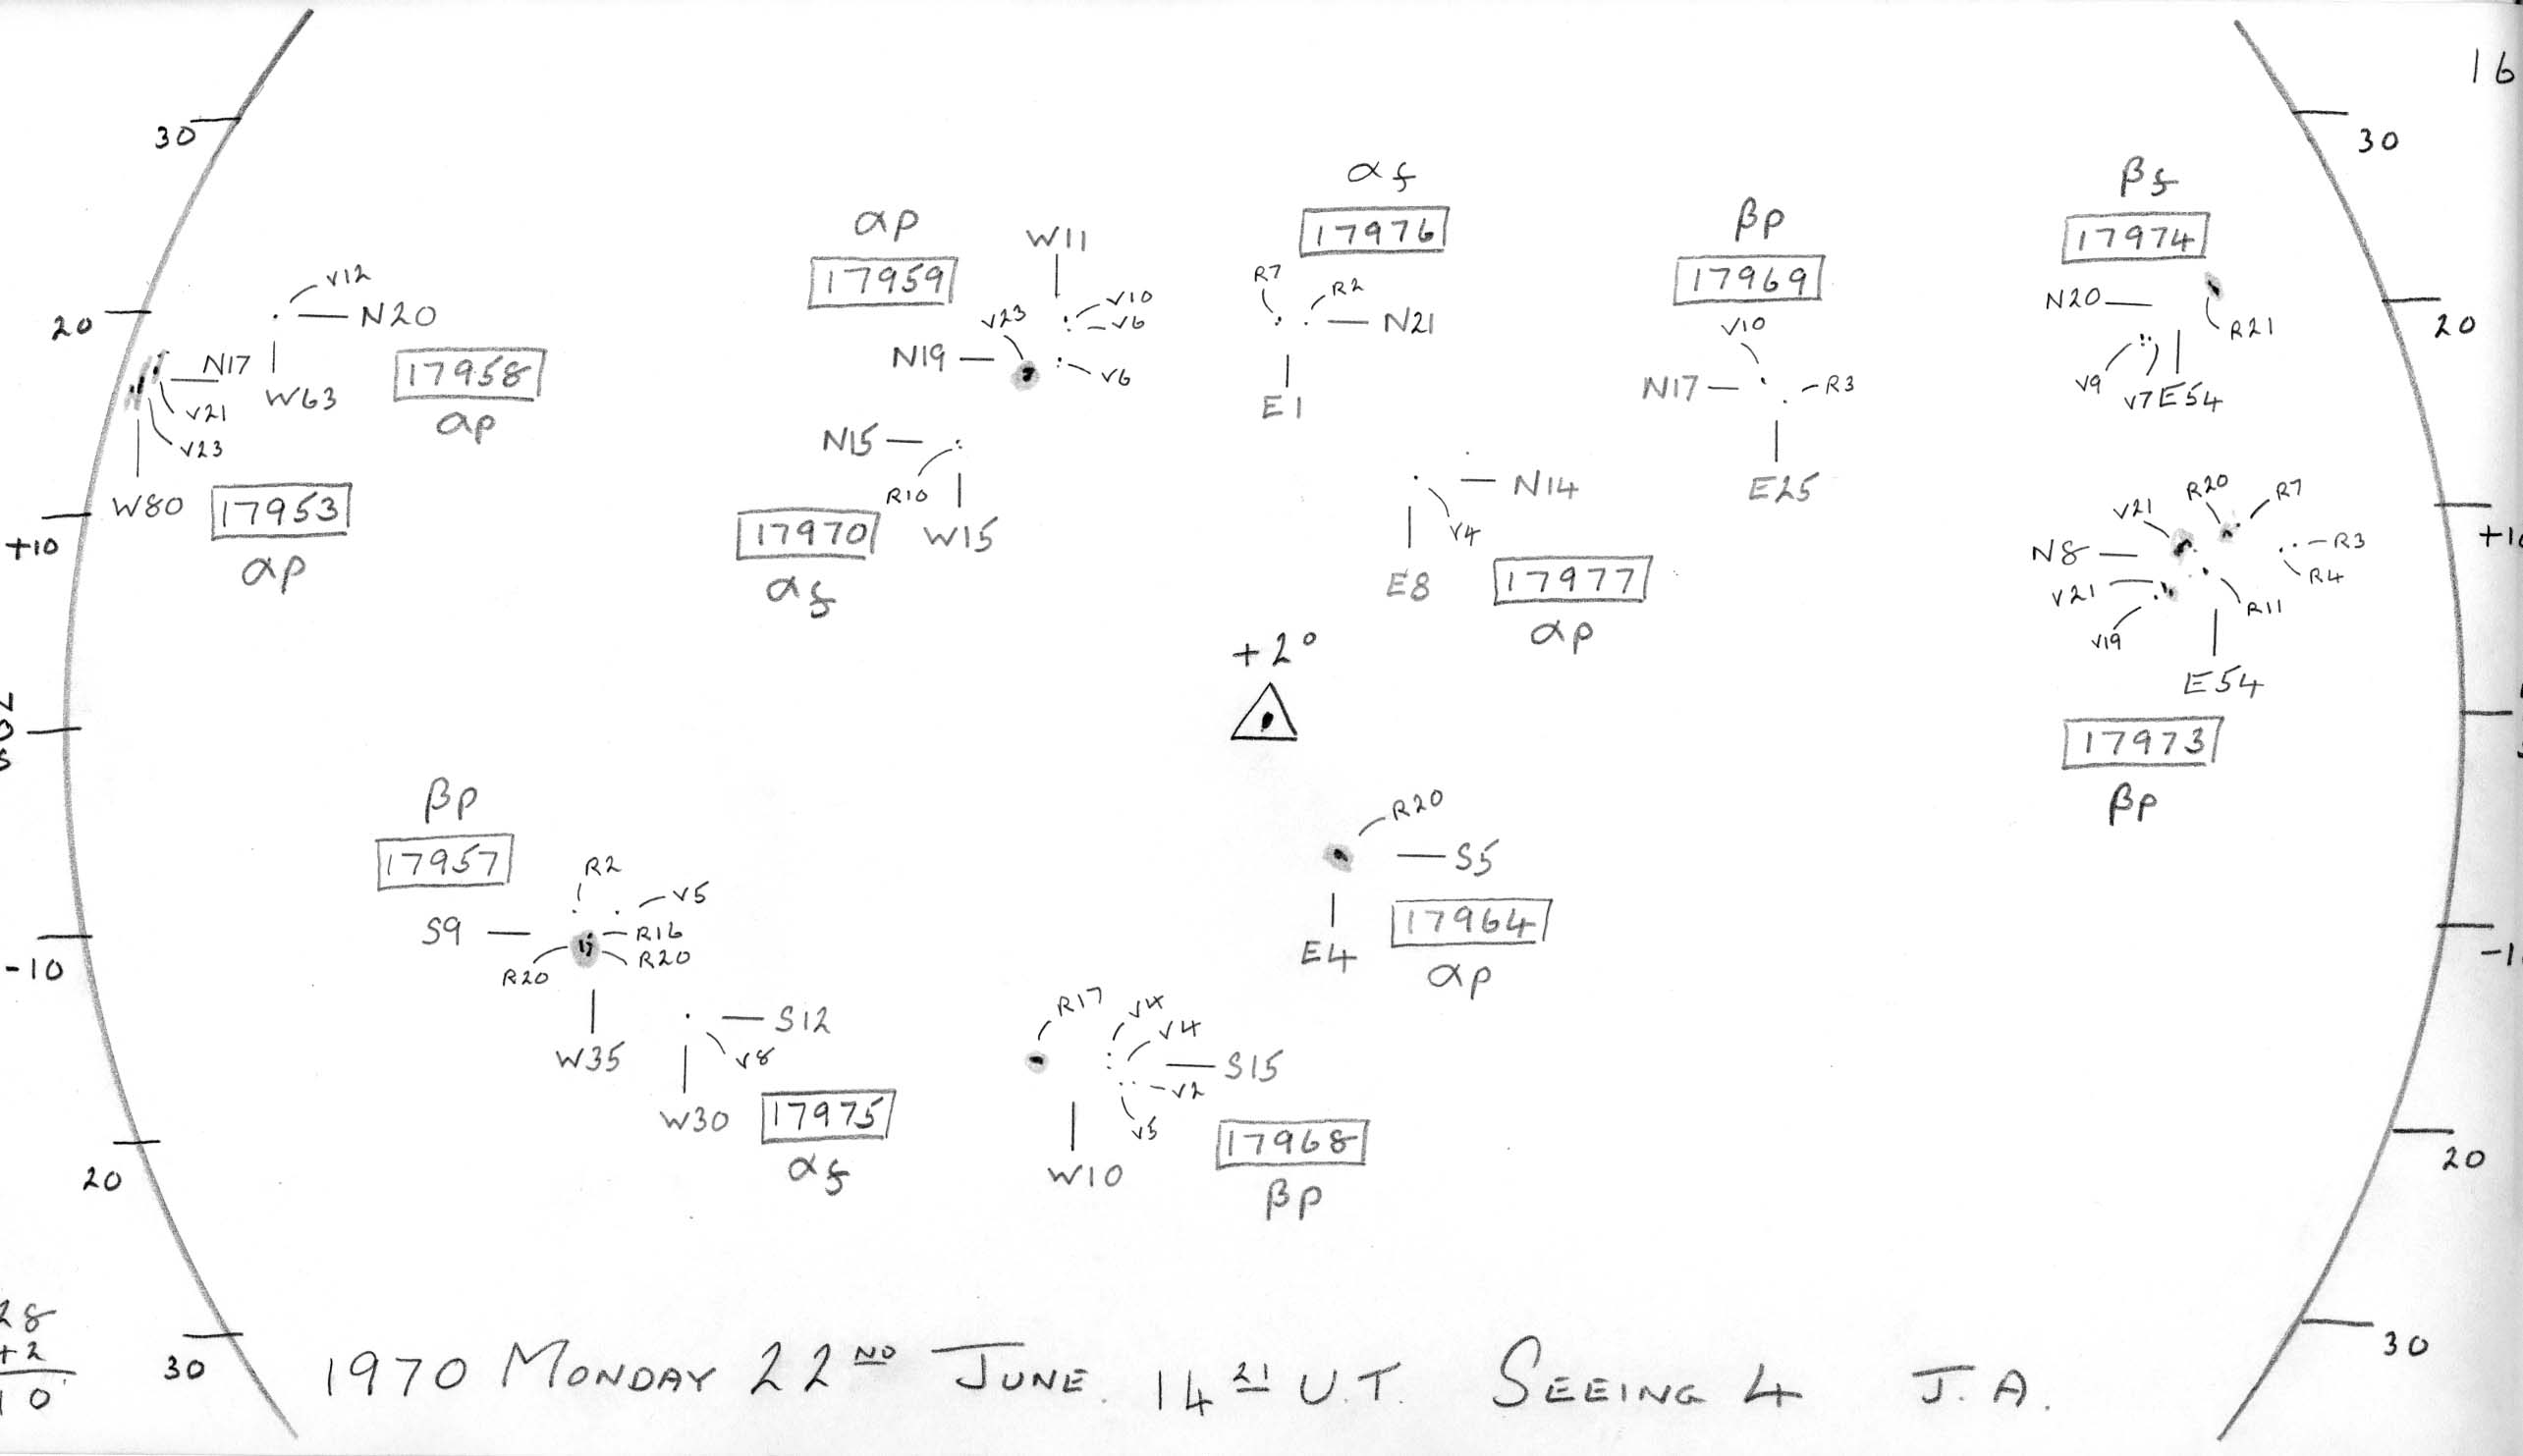 16
30
30
αf
βf
αp
W11
17976
βp
17974
17959
17969
V12
V10
R7
R2
N20
V6
N20
V23
N21
V10
R21
20
20
N17
N19
V6
W63
17958
N17
R3
V9
V7
E54
V21
αp
E1
V23
N15
R10
N14
E25
W80
17953
17970
W15
V4
V21
R20
R7
+10
αp
αf
E8
17977
N8
R3
R4
V21
R11
αp
V19
+2°
E54
17973
βp
βp
R20
17957
R2
S5
V5
S9
R16
17964
R20
R20
E4
-10
αp
R17
V4
V4
S12
W35
V8
S15
V2
W30
17975
V5
17968
W10
αf
βp
20
20
28
+2
10
30
30
1970 MONDAY 22ND JUNE. 14 21 U.T. SEEING 4 J.A.